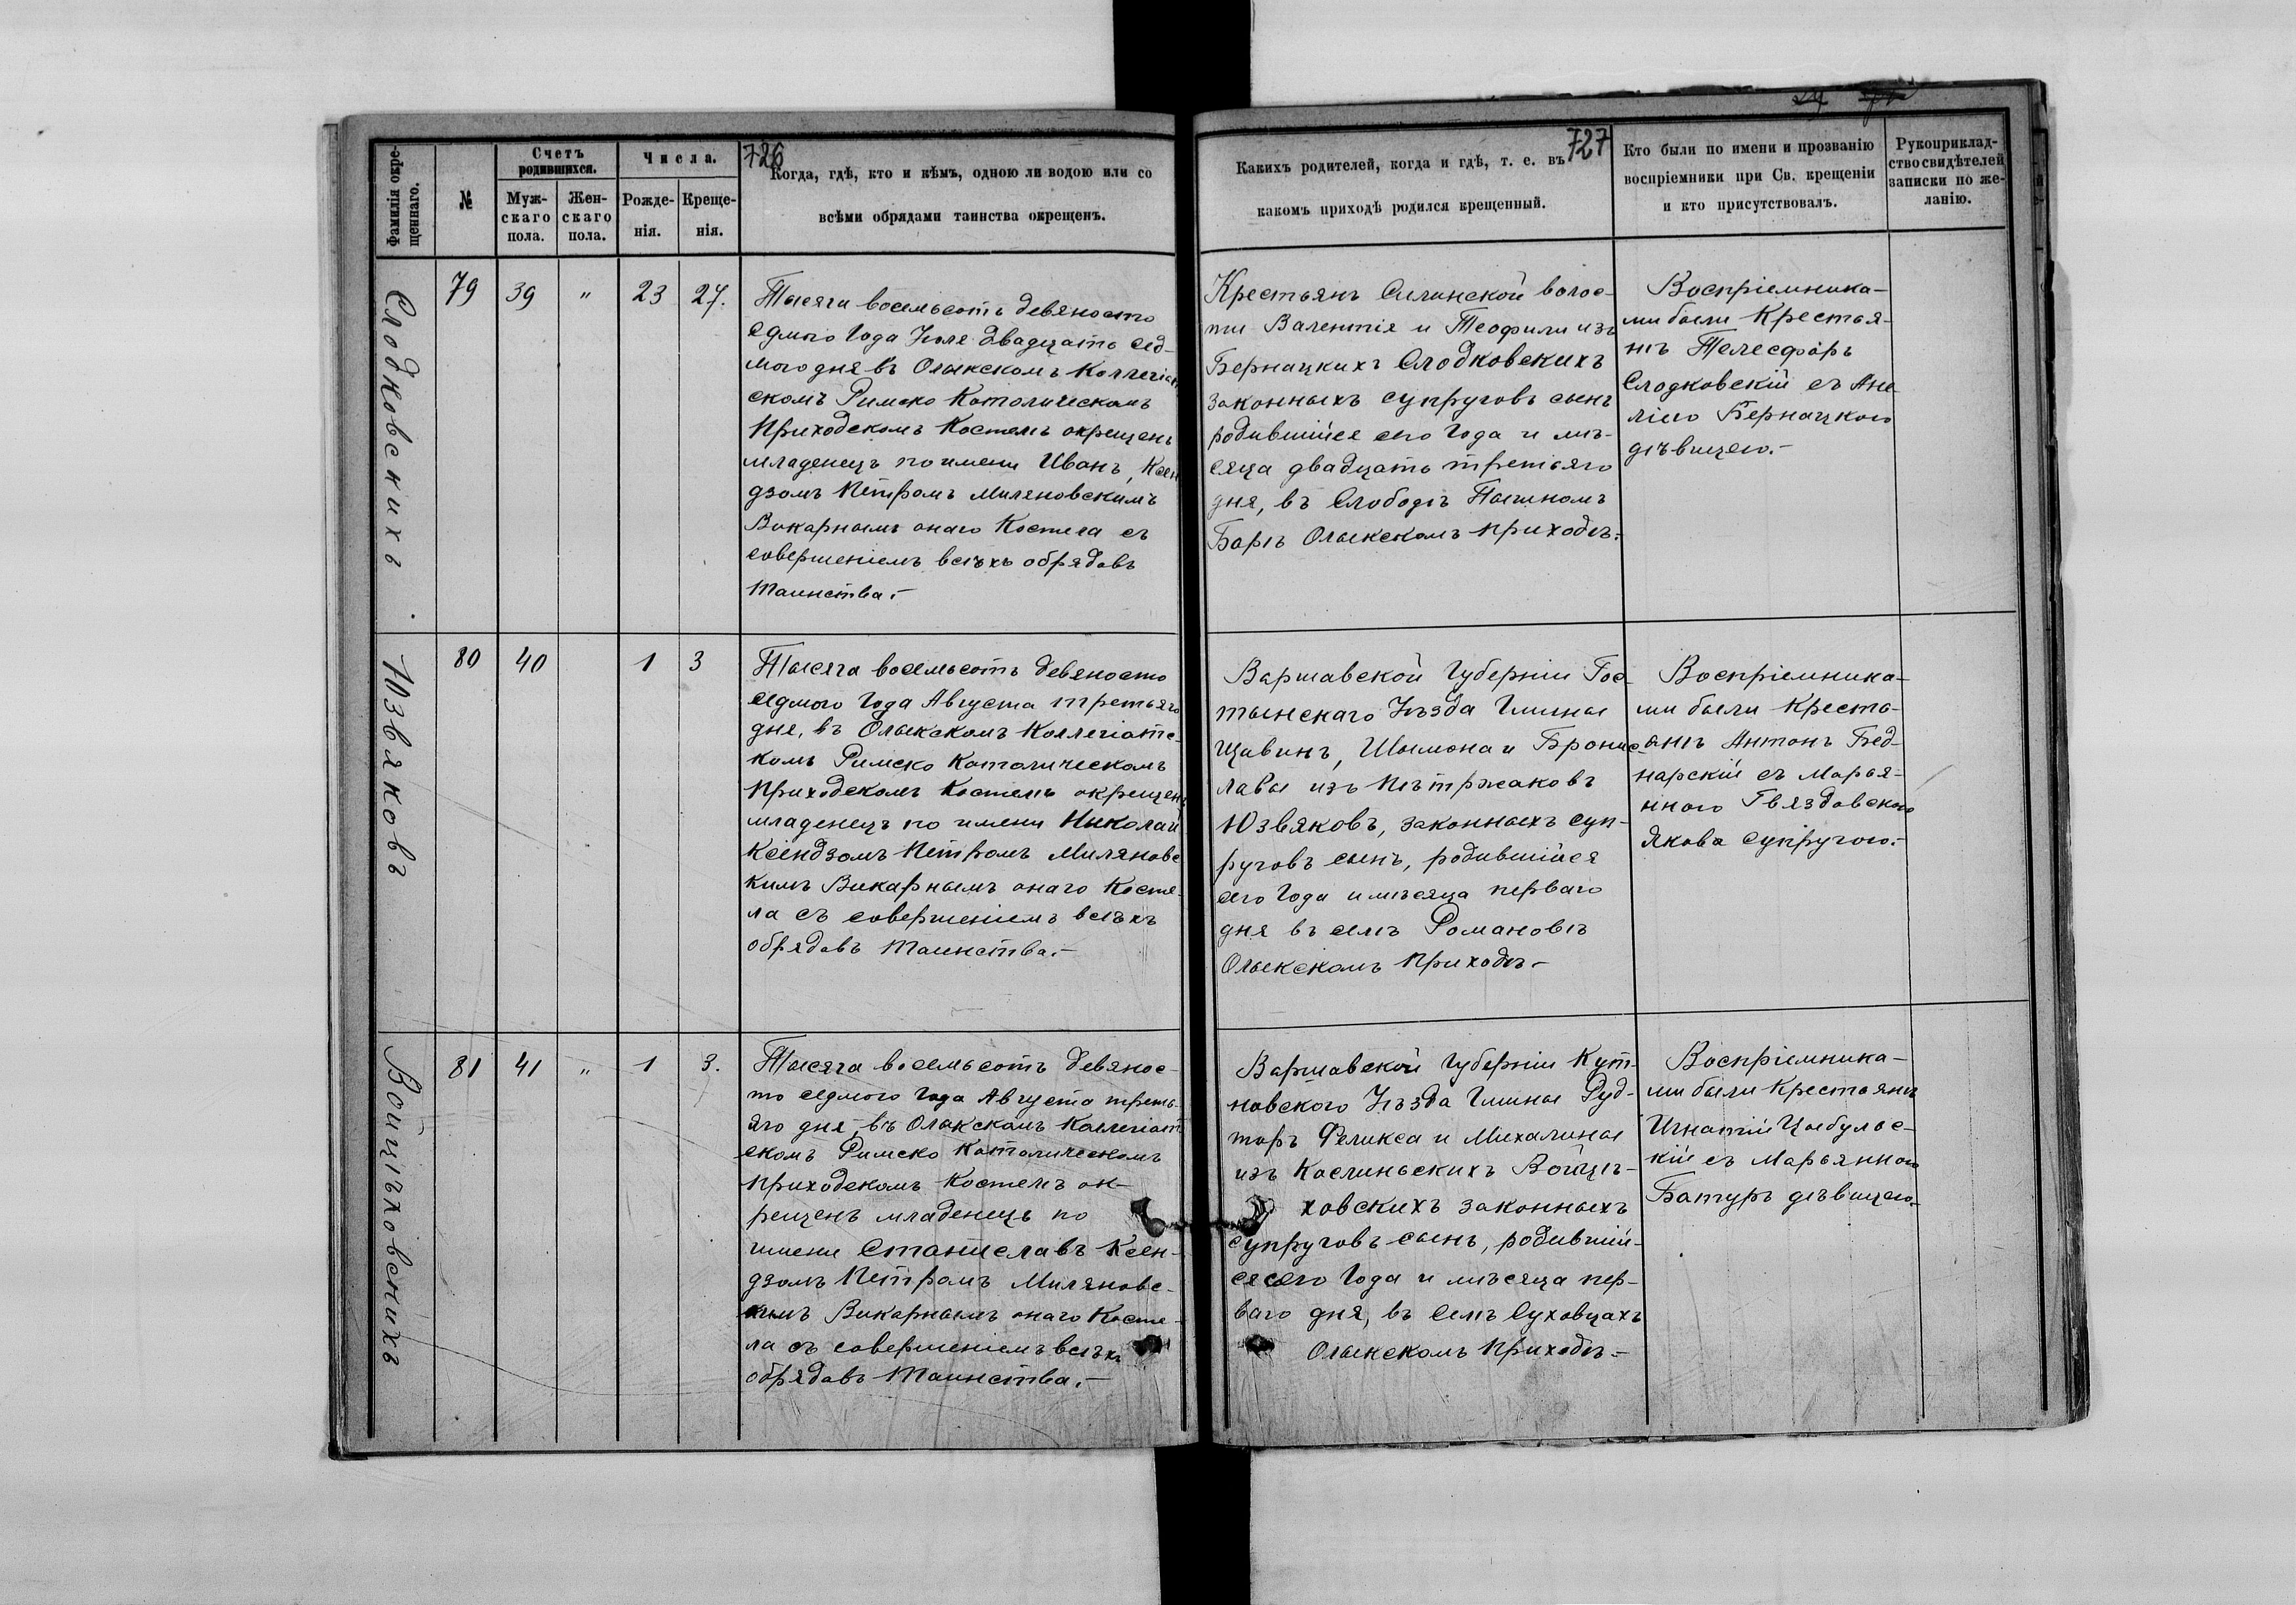 726
727
Фамилія окре-
щеннаго.
№
Счетъ
родившихся.
Муж-
скаго
пола.
Жен-
скаго
пола.
Числа.
Рожде-
нія.
Креще-
нія.
Когда, гдѣ, кто и кѣмъ, одною ли водою или со
всѣми обрядами таинства окрещенъ.
Какихъ родителей, когда и гдѣ, т. е. въ
какомъ приходѣ родился крещенный.
Кто были по имени и прозванію
воспріемники при Св. крещеніи
и кто присутствовалъ.
Рукоприклад-
ство свидѣтелей
записки по же-
ланію.
Слодковскихъ
79 39 " 23 27.
Тысяча восемьсотъ девяносто
седмого Года Іюля двадцать сед-
мого дня въ Олыкскомъ Коллегіат
скомъ Римско Католическомъ
Приходскомъ Костелѣ окрещенъ
младенецъ по имени Иванъ, Ксен
дзомъ Петромъ Миляновскимъ
Викарнымъ онаго Костела съ
совершеніемъ всѣхъ обрядовъ
Таинства.-
Крестьянъ Силинской волос-
ти Валентія и Теофили изъ
Бернацкихъ Слодковскихъ
законныхъ супруговъ сынъ
родившійся сего Года и мѣ-
сяца двадцать третьяго
дня, въ Слободѣ
Борѣ Олыкскомъ приходѣ.-
Воспріемника-
ми были Крестья-
нѣ Телесфоръ
Слодковскій съ Анѣ
ліею Бернацкою
дѣвицею.-
Юзвяковъ
80 40 1 3
Тысяча восемьсотъ девяносто
седмого Года Августа третьяго
дня, въ Олыкскомъ Коллегіатс-
комъ Римско Католическомъ
Приходскомъ Костелѣ окрещенъ
младенецъ по имени Николай
Ксендзомъ Петромъ Миляновс
кимъ Викарнымъ онаго Косте-
ла съ совершеніемъ всѣхъ
обрядовъ Таинства.-
Варшавской Губерніи Гос-
тынскаго Уѣзда Гмины
Щавинъ, Шымона и Бронис-
лавы изъ Пѣтржаковъ
Юзвяковъ, законныхъ суп-
руговъ сынъ, родившійся
сего Года и мѣсяца перваго
дня въ селѣ Романовѣ
Олыкскомъ Приходѣ.-
Воспріемника-
ми были Кресть-
янѣ Антонъ Бед-
нарскій съ Марья-
нною Гвяздовскою
Якова супругою.-
Войцѣховскихъ
81 41 " 1 3.
Тысяча восемьсотъ девянос-
то седмого Года Августа треть-
яго дня, въ Олыкскомъ Коллегіат
скомъ Римско Католическомъ
Приходскомъ Костелѣ ок-
рещенъ младенецъ по
имени Станиславъ Ксен-
дзомъ Петромъ Миляновс-
кимъ Викарнымъ онаго Косте-
ла съ совершеніемъ всѣхъ
обрядовъ Таинства.-
Варшавской Губерніи Кут-
новского Уѣзда Гмины Рud-
торъ Феликса и Михалины
изъ Каслиньскихъ Войцѣ-
ховскихъ законныхъ
супруговъ сынъ, родившій-
ся сего Года и мѣсяца пер-
ваго дня, въ Селѣ Суховцахъ
Олыкскомъ Приходѣ.-
Воспріемника-
ми были Крестьянѣ
Игнатій Цыбульс-
кій съ Марьянною
Батуръ дѣвицею.-